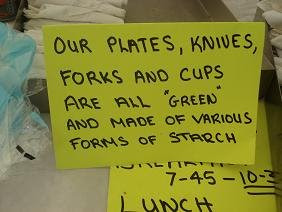 OUR PLATES, KNIVES,
FORKS AND CUPS
ARE ALL "GREEN"
AND MADE OF VARIOUS
FORMS OF STARCH
7-45 - 10-
LUNCH